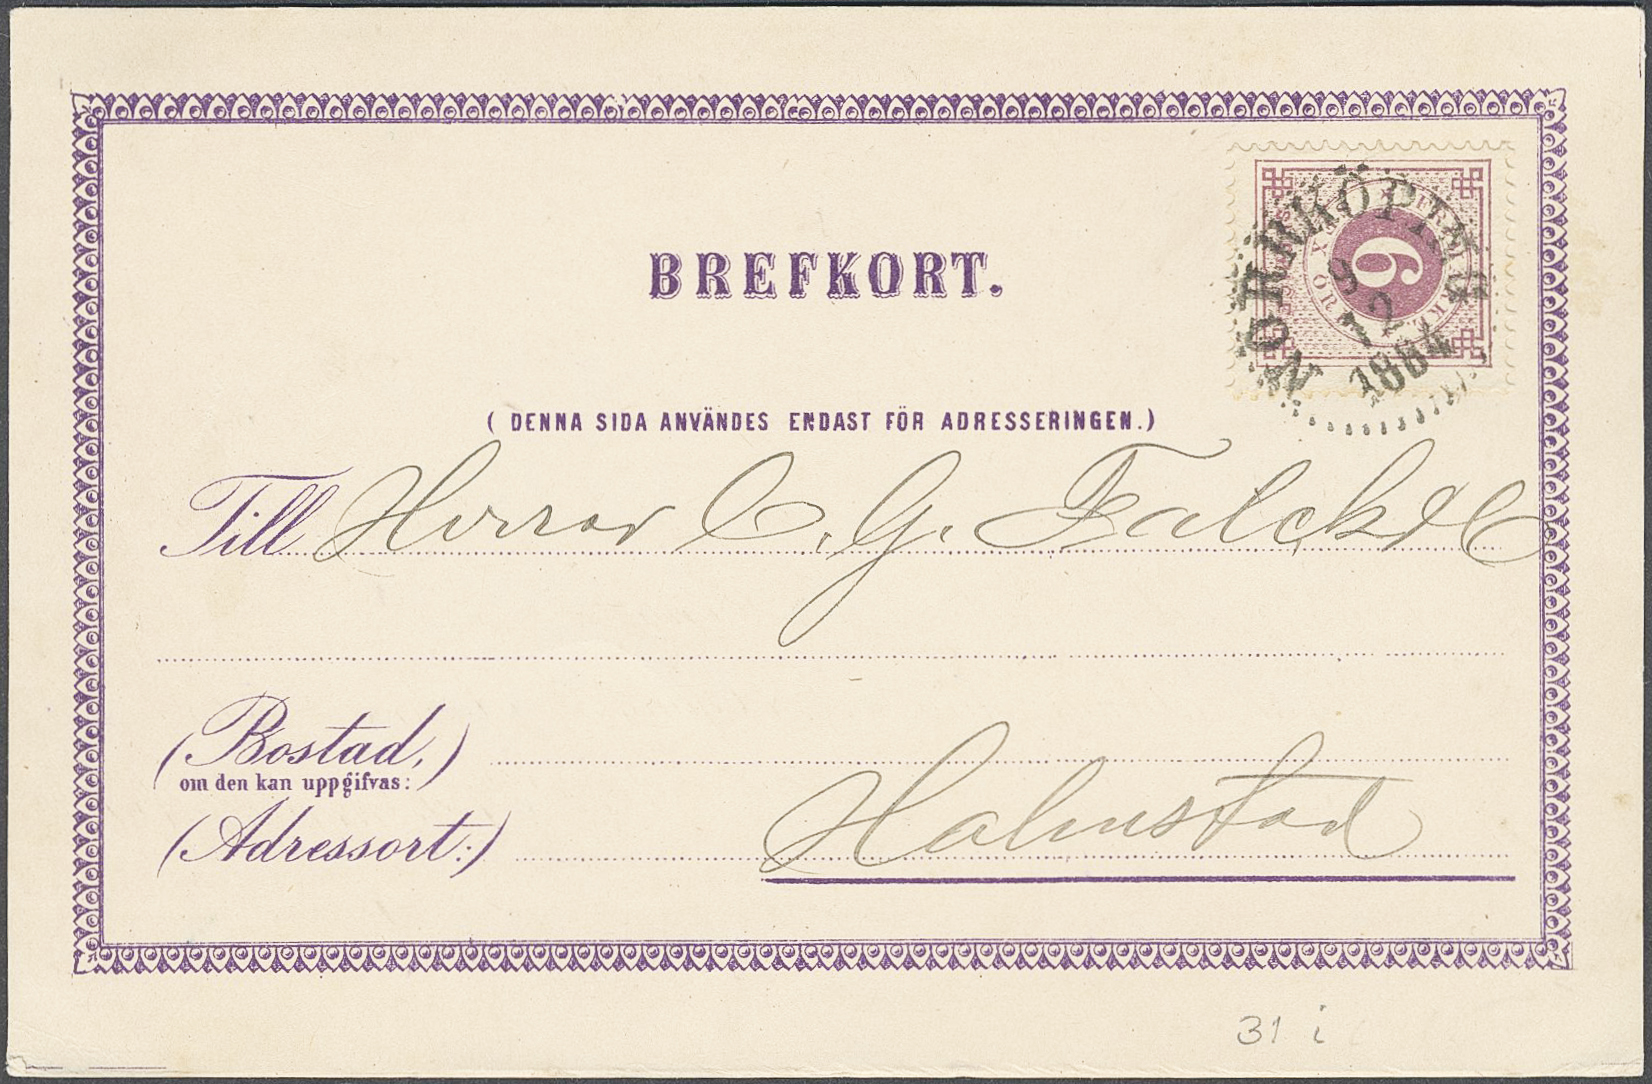 BREFKORT.
6
NORRKÖPING
9
12
1884
( DENNA SIDA ANVÄNDES ENDAST FÖR ADRESSERINGEN.)
Till Herrar C. G. Falck & C
(Bostad,)
om den kan uppgifvas:
(Adressort:) Halmstad
31 i